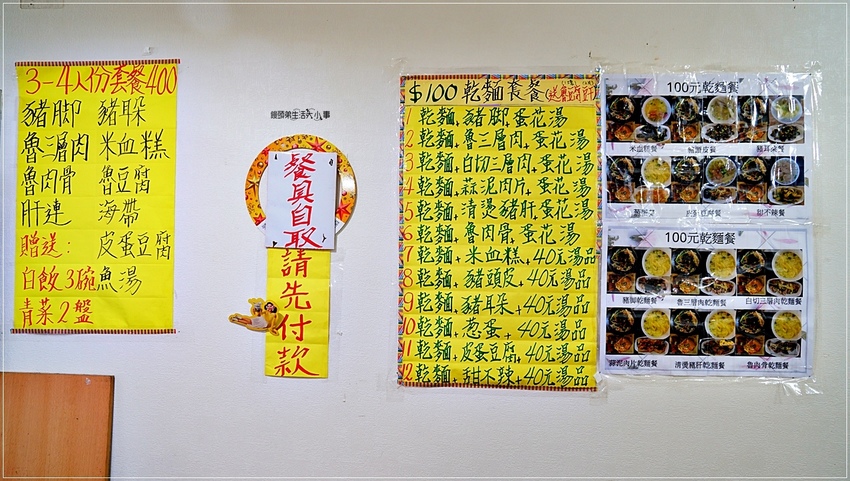 3-4人份套餐400
豬脚 豬朵
魯三層肉 米血糕
魯肉骨 魯豆腐
肝連 海帶
贈送: 皮蛋豆腐
白飯3碗 魚湯
青菜2盤
饅頭弟生活大小事
餐具自取
請先付款
$100 乾麵套餐(送魯豆腐豆干)
1 乾麵+豬脚+蛋花湯
2 乾麵+魯三層肉+蛋花湯
3 乾麵+白切三層肉+蛋花湯
4 乾麵+蒜泥肉片+蛋花湯
5 乾麵+清燙豬肝+蛋花湯
6 乾麵+魯肉骨+蛋花湯
7 乾麵+米血糕+40元湯品
8 乾麵+豬頭皮+40元湯品
9 乾麵+豬朵+40元湯品
10 乾麵+蔥蛋+40元湯品
11 乾麵+皮蛋豆腐+40元湯品
12 乾麵+甜不辣+40元湯品
100元乾麵餐
米血糕餐 豬頭皮餐 豬耳朵餐
蔥蛋餐 皮蛋豆腐餐 甜不辣餐
100元乾麵餐
豬腳乾麵餐 魯三層肉乾麵餐 白切三層肉乾麵餐
蒜泥肉片乾麵餐 清燙豬肝乾麵餐 魯肉骨乾麵餐